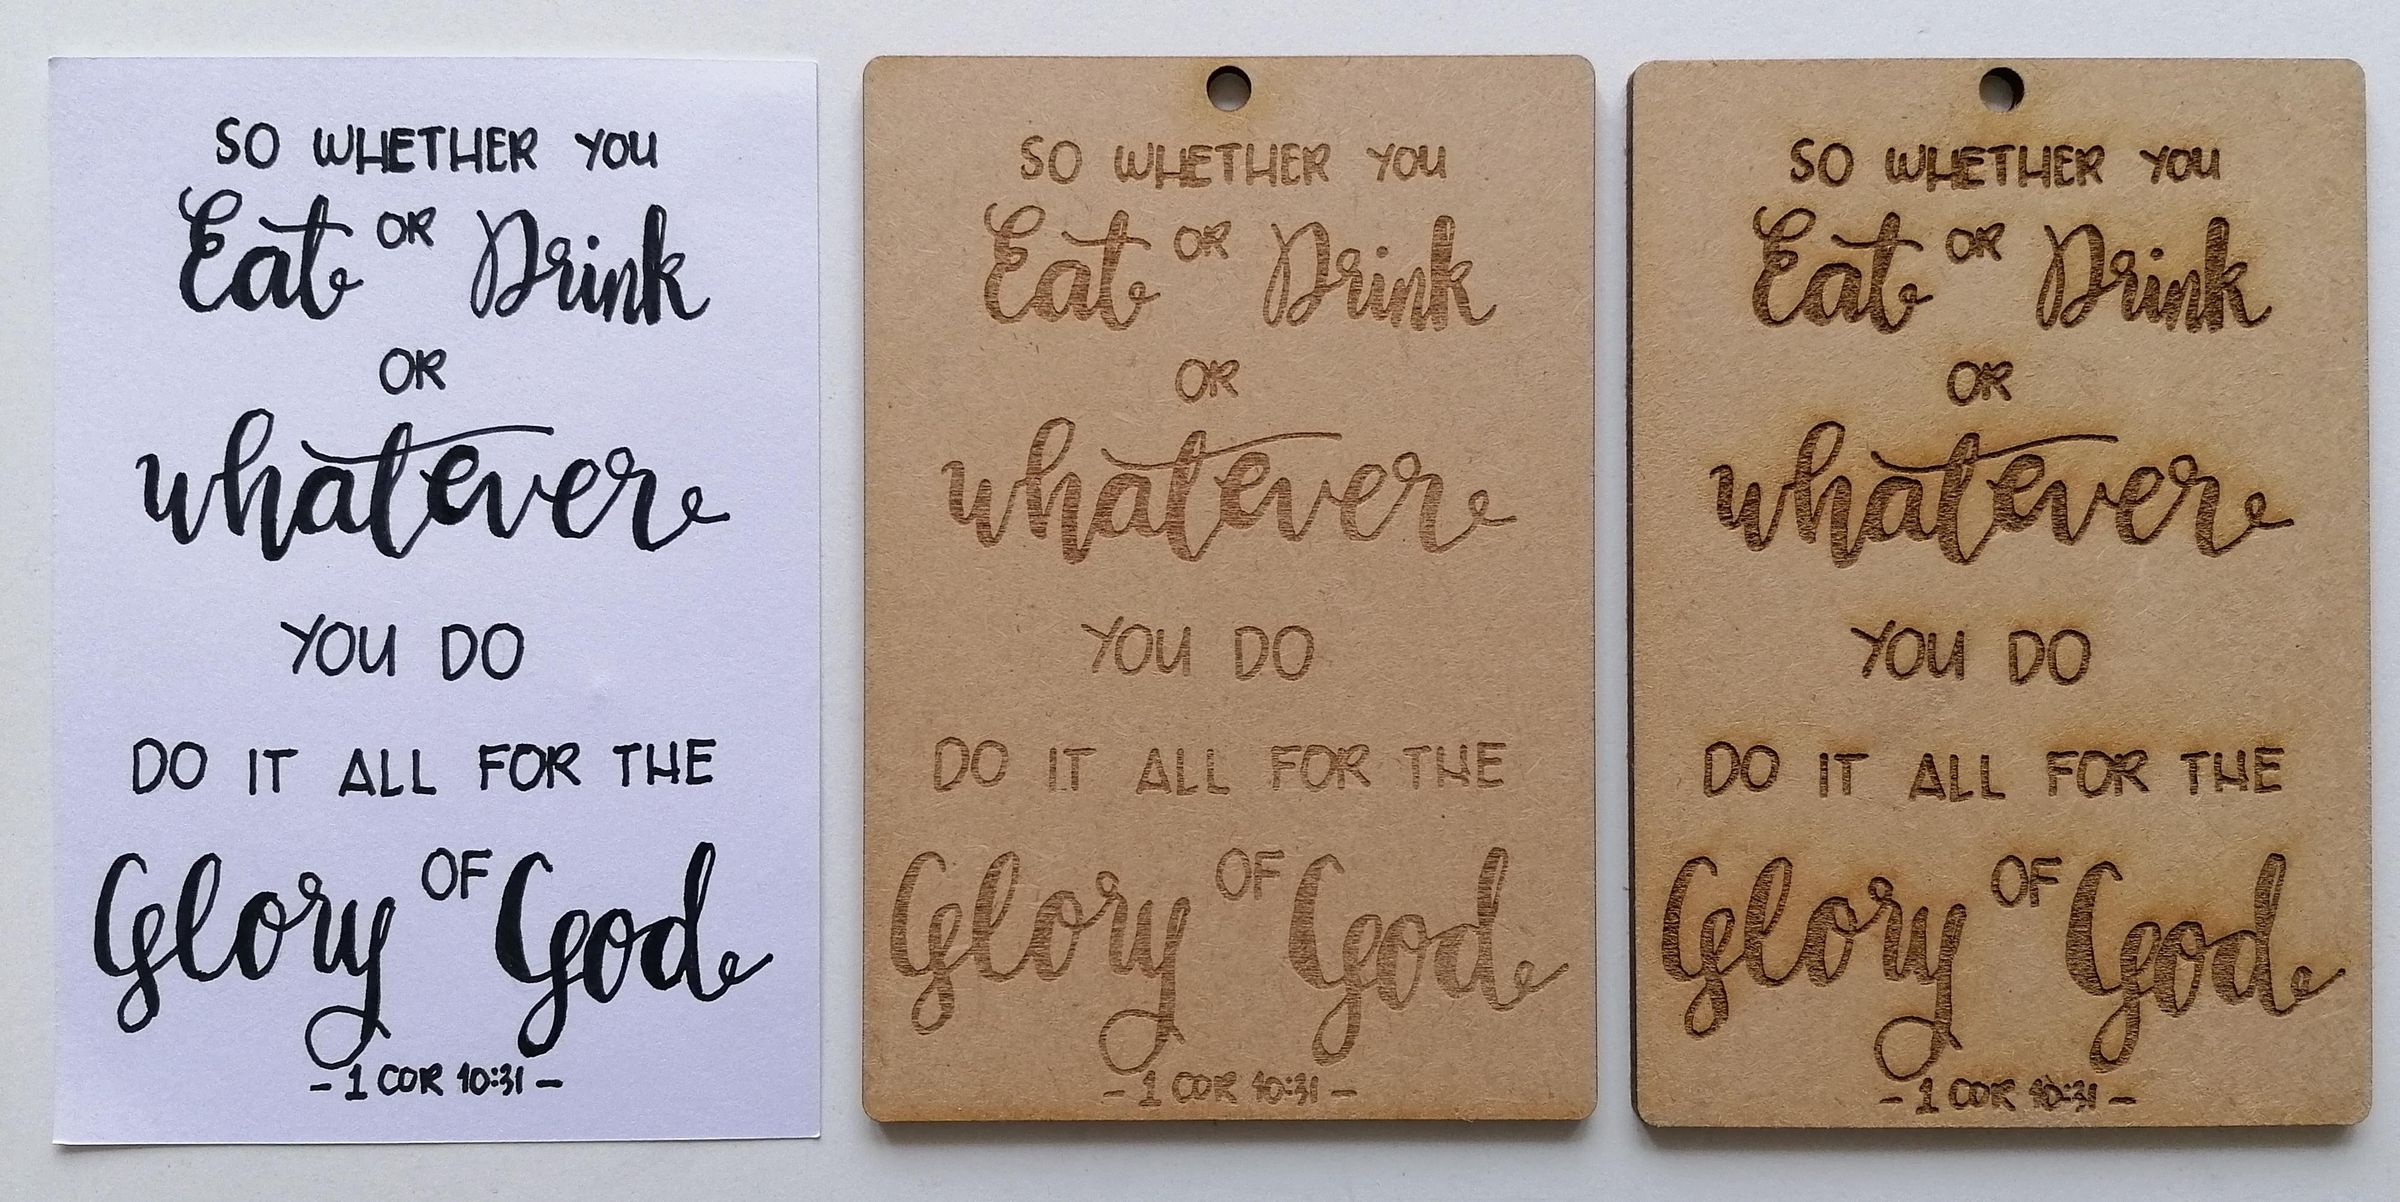 SO WHETHER YOU
Eat OR Drink
OR
whatever
YOU DO
DO IT ALL FOR THE
Glory OF God
- 1 COR 10:31 -
SO WHETHER YOU
Eat OR Drink
OR
whatever
YOU DO
DO IT ALL FOR THE
Glory OF God
- 1 COR 10:31 -
SO WHETHER YOU
Eat OR Drink
OR
whatever
YOU DO
DO IT ALL FOR THE
Glory OF God
- 1 COR 10:31 -